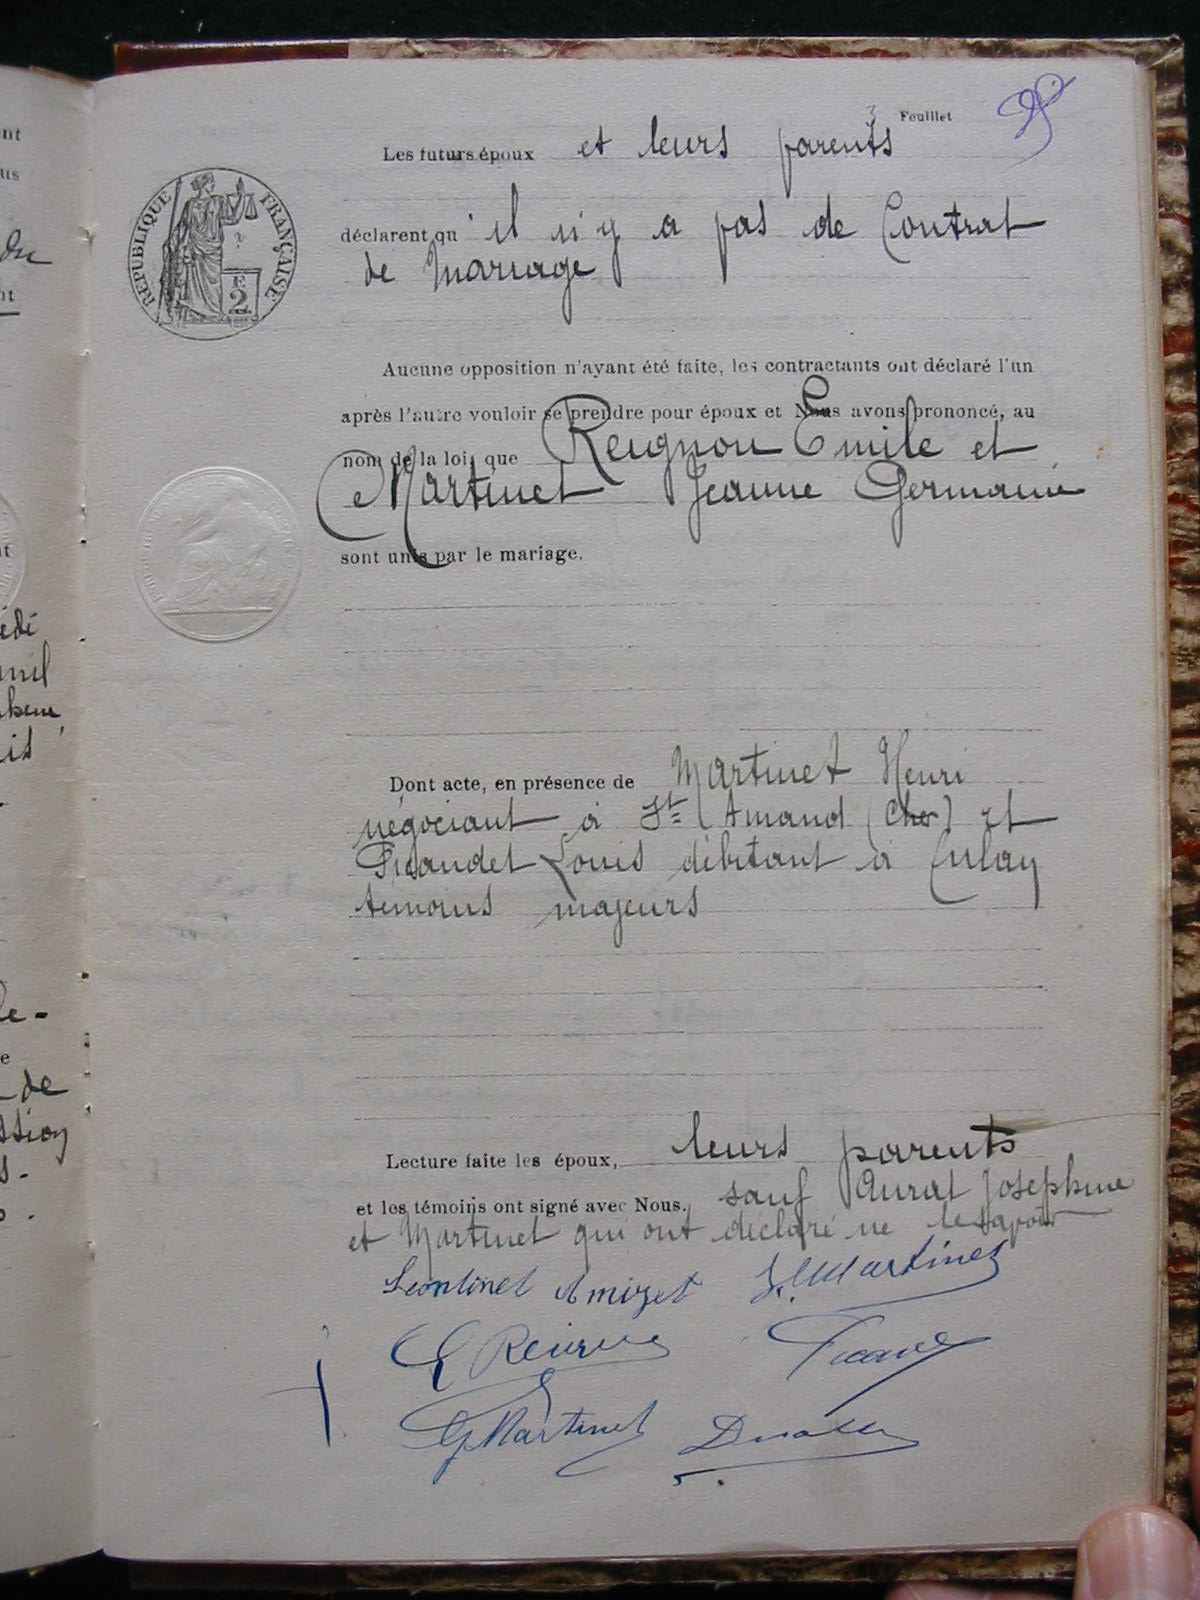 Feuillet
Les futurs époux et leurs parents
RÉPUBLIQUE FRANÇAISE
déclarent qu'il n'y a pas de Contrat
de Mariage
F
2
Aucune opposition n'ayant été faite, les contractants ont déclaré l'un
après l'autre vouloir se prendre pour époux et Nous avons prononcé, au
nom de la loi, que Reugnon Emile et
Martinet Jeanne Germaine
sont unis par le mariage.
Dont acte, en présence de Martinet Henri
négociant à St Amand (Cher) et
Louis débitant à Culan
témoins majeurs
Lecture faite les époux, leurs parents
et les témoins ont signé avec Nous. sauf Aurat Josephine
et Martinet qui ont déclaré ne le savoir
Martinet
G Martinet
ent
us
du
nt
édé
de